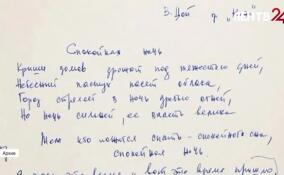 В. Цой гр. „Кино"
ЛЕНТВ24
Спокойная ночь
Крыши домов дрожат под тяжестью дней,
Небесный пастух пасет облака,
Город стреляет в ночь дробью огней,
Но ночь сильней, ее власть велика
Тем кто ложится спать – спокойного сна,
Спокойная ночь
Архив
это время и вот это время пришло